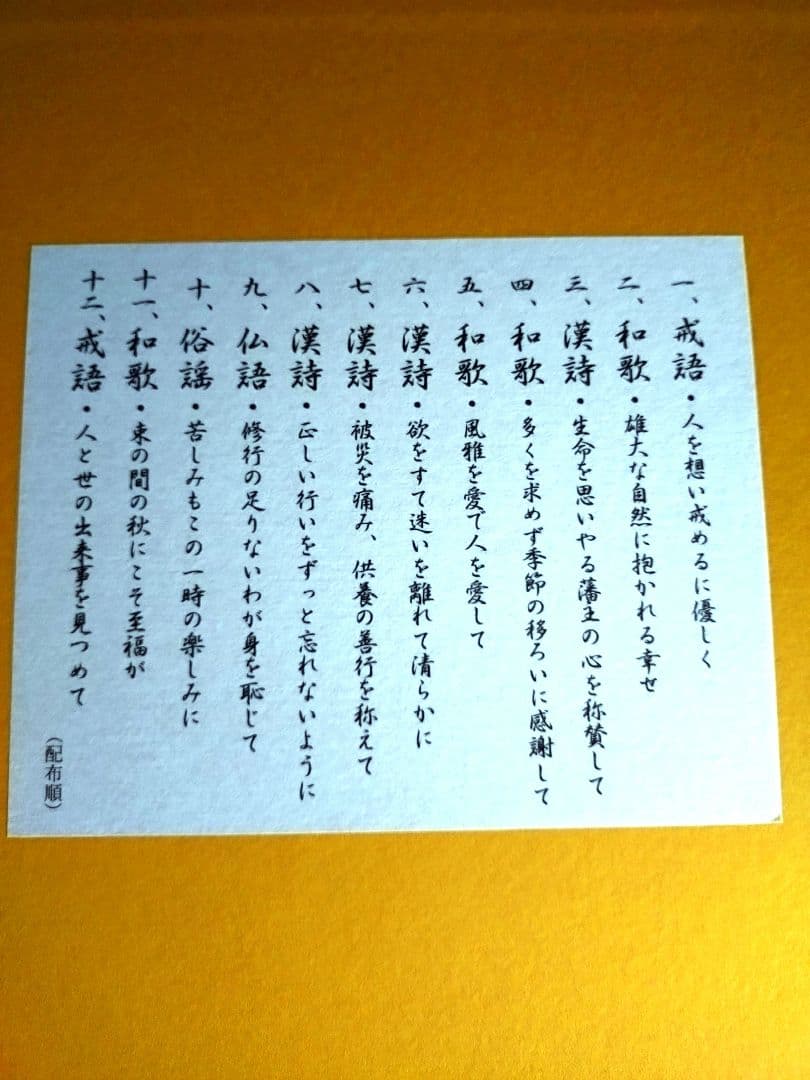 一、戒語・人を想い戒めるに優しく
二、和歌・雄大な自然に抱かれる幸せ
三、漢詩・生命を思いやる藩主の心を称賛して
四、和歌・多くを求めず季節の移ろいに感謝して
五、和歌・風雅を愛で人を愛して
六、漢詩・欲をすて迷いを離れて清らかに
七、漢詩・被災を痛み、供養の善行を称えて
八、漢詩・正しい行いをずっと忘れないように
九、仏語・修行の足りないわが身を恥じて
十、俗謡・苦しみもこの一時の楽しみに
十一、和歌・束の間の秋にこそ至福が
十二、戒語・人と世の出来事を見つめて
（配布順）